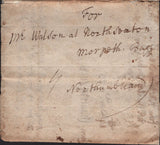 For
Mr Wilson at North Seaton
Morpeth
Northumberland